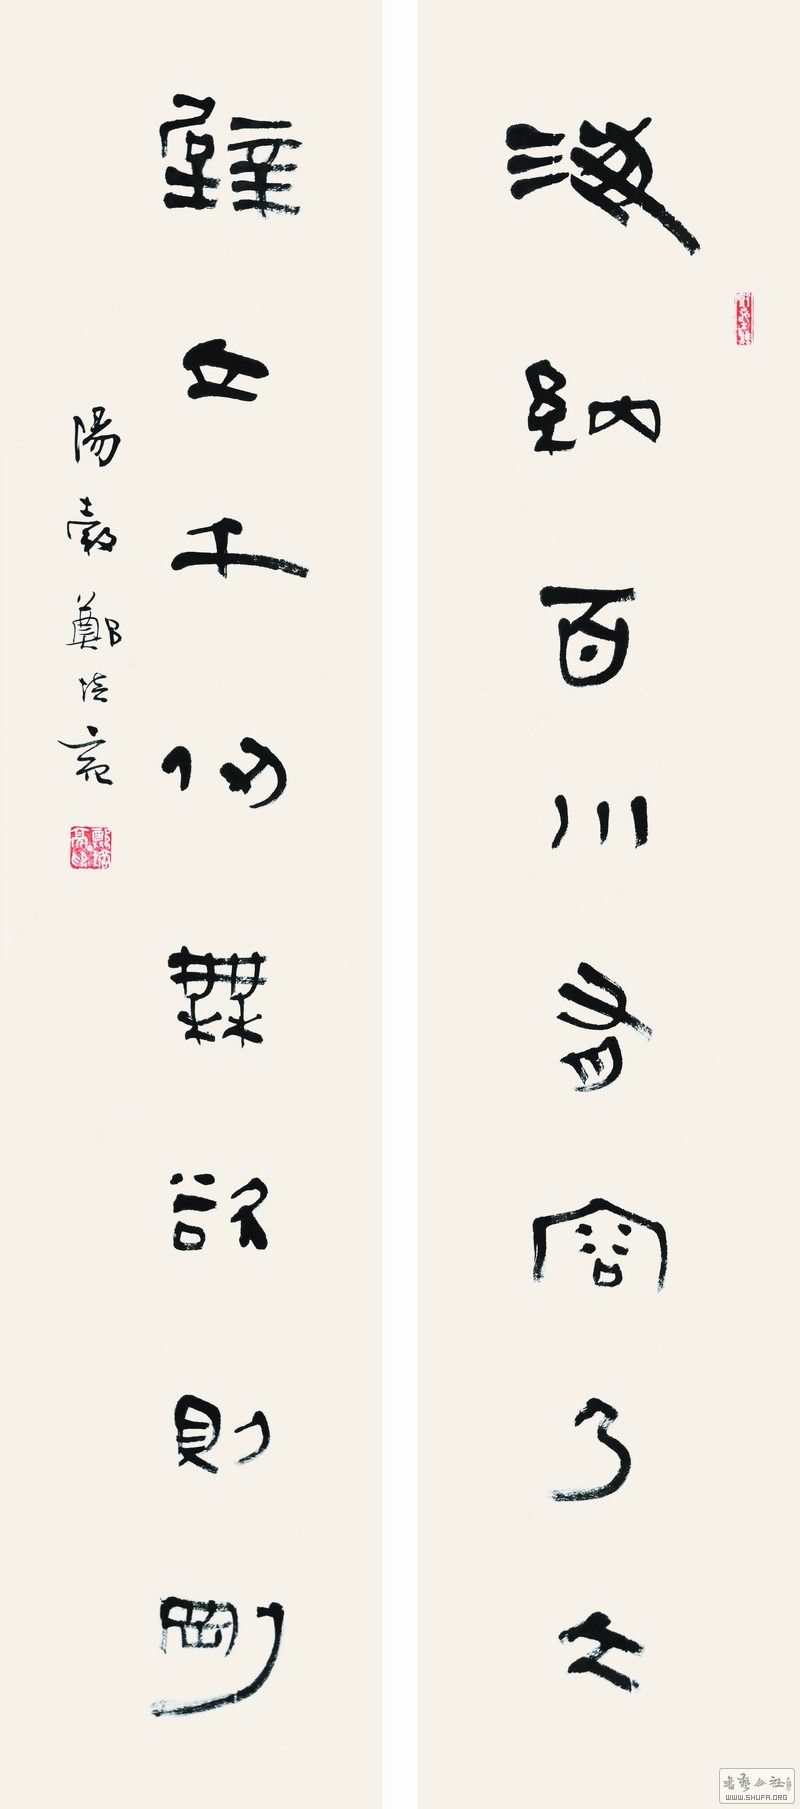 海納百川有容乃大
壁立千仞無欲則剛
陽穀鄭培亮
書藝公社
WWW.SHUFA.ORG